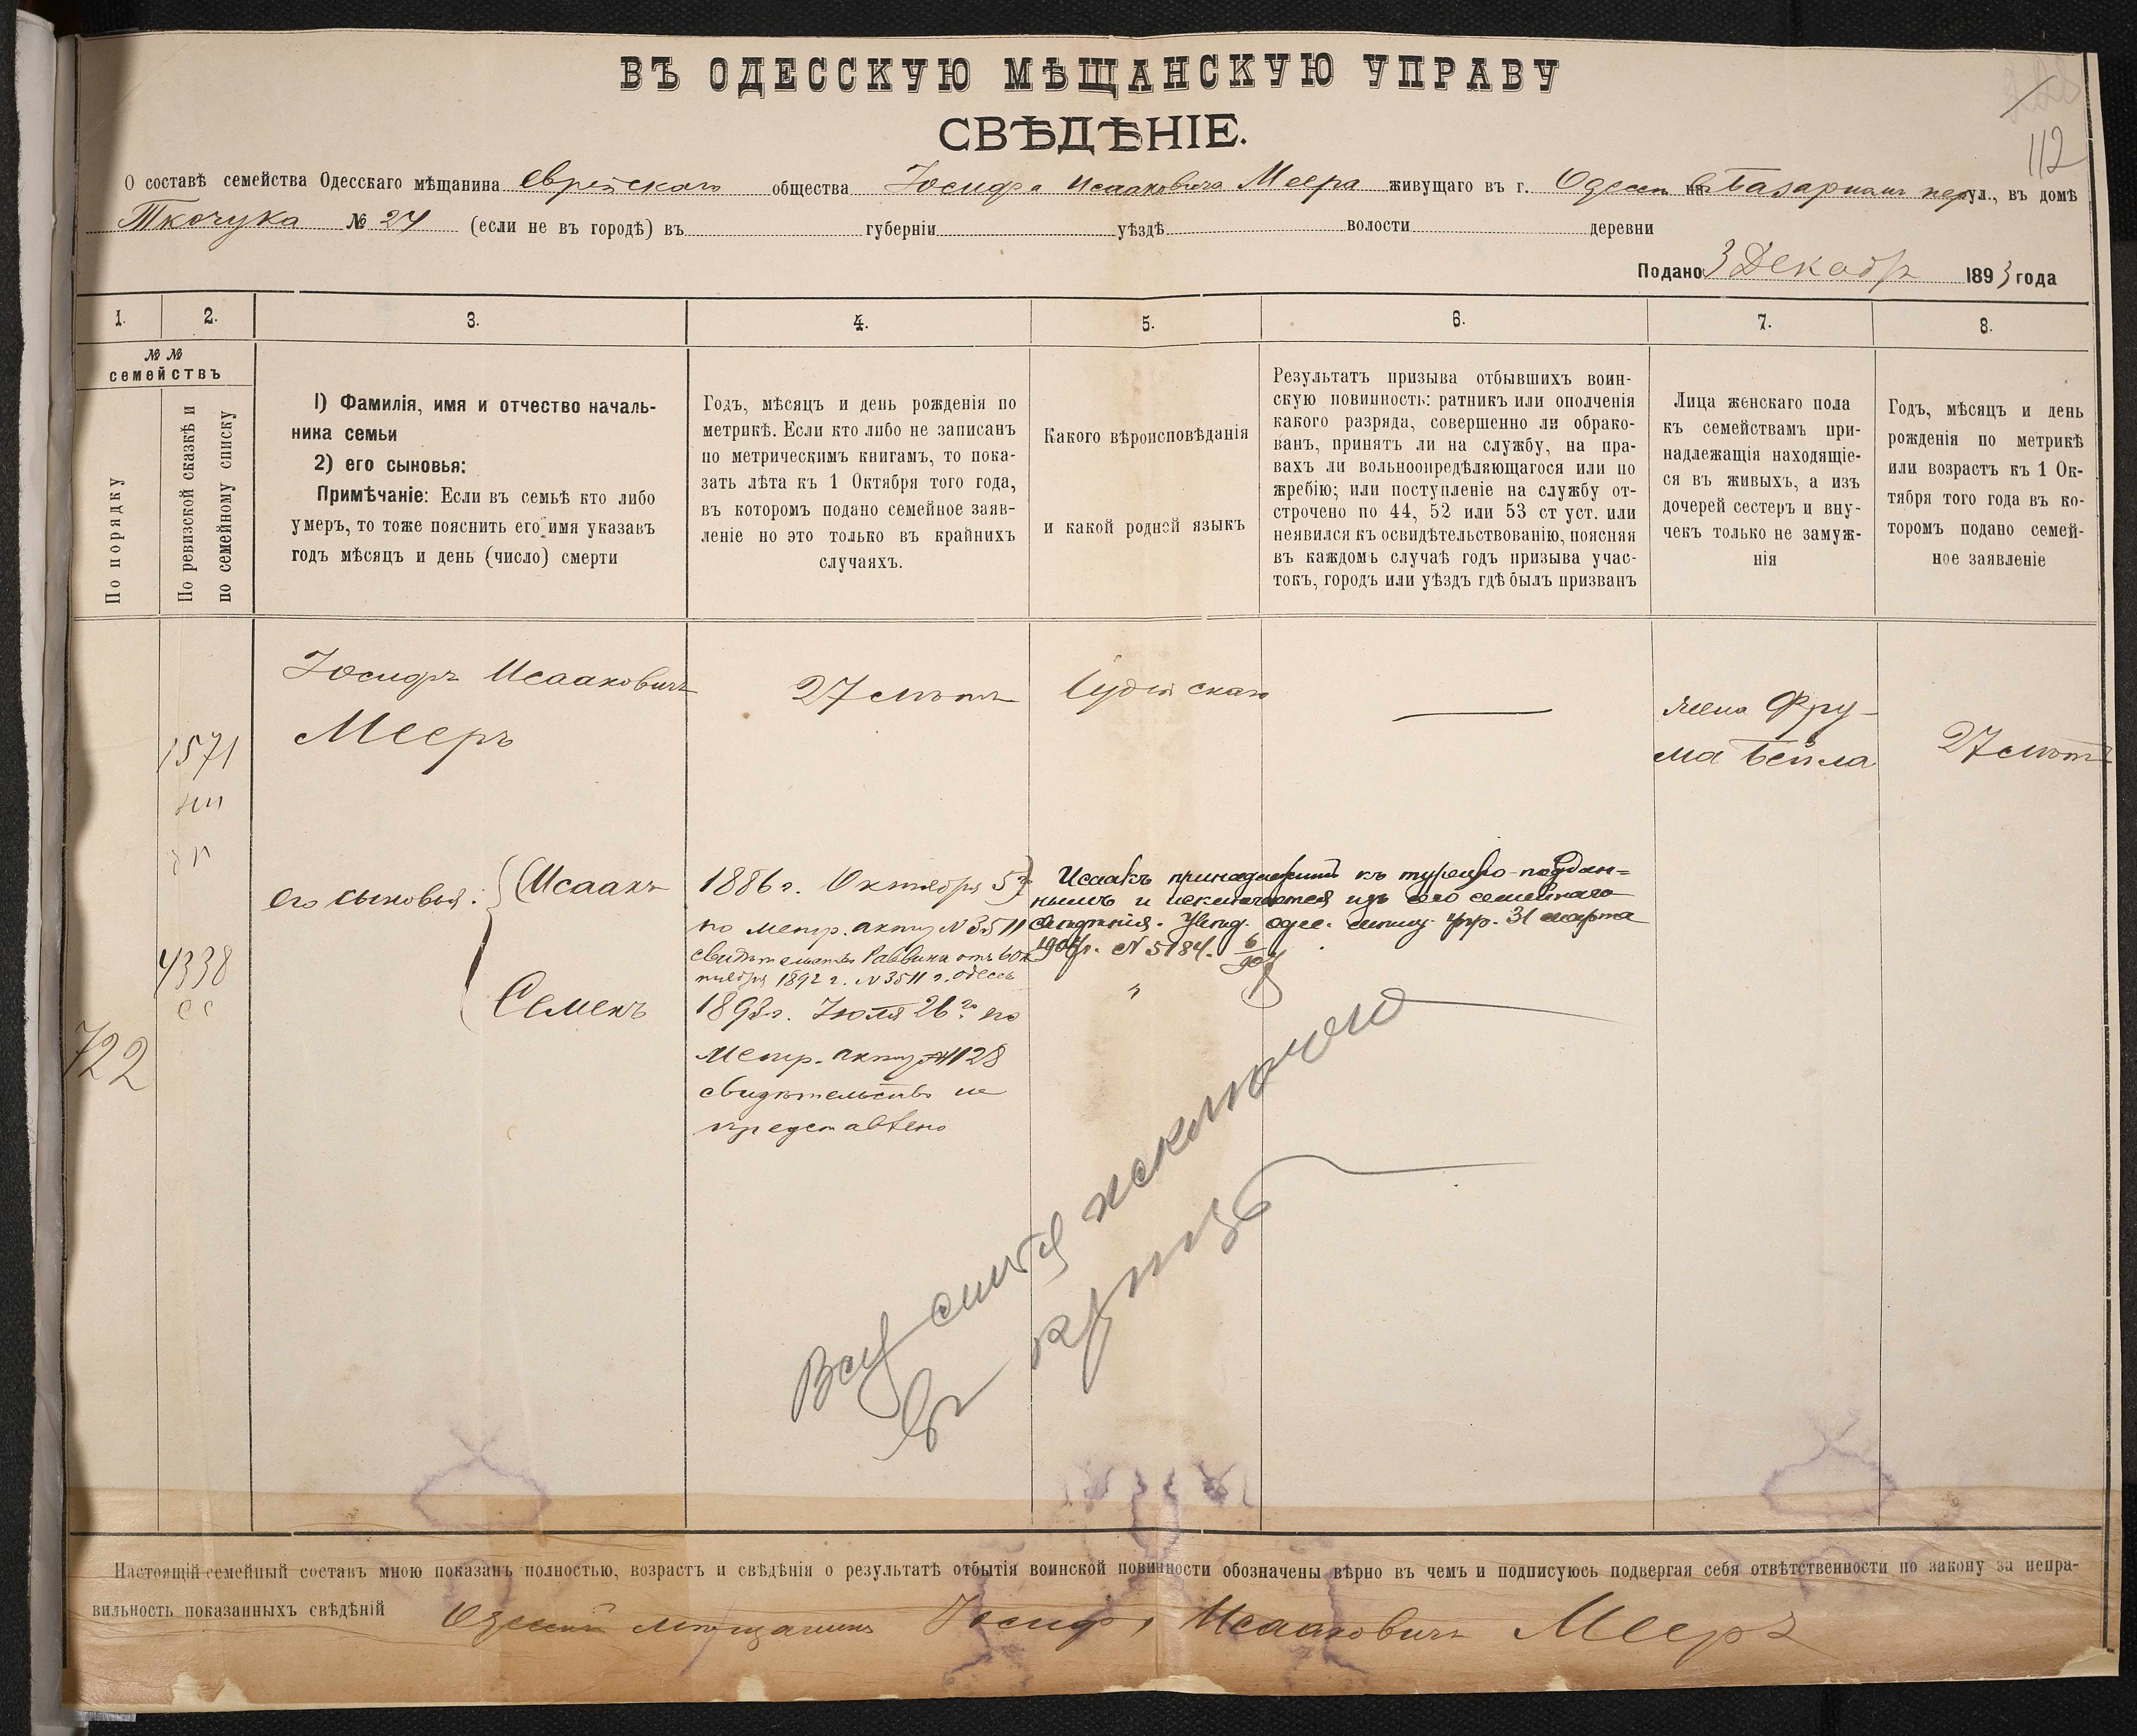 ВЪ ОДЕССКУЮ МѢЩАНСКУЮ УПРАВУ
СВѢДѢНІЕ.
112
О составѣ семейства Одесскаго мѣщанина еврейскаго общества Іосифа Исааковича Меера живущаго въ г. Одессѣ на Базарномъ пер ул., въ домѣ
Ткочука № 24 (если не въ городѣ) въ губерніи уѣздѣ волости деревни
Подано 3 Декабр 1893 года
1. 2. 3. 4. 5. 6. 7. 8.
№ №
семействъ
По порядку
По ревизской сказкѣ и
по семейному списку
1) Фамилія, имя и отчество началь-
ника семьи
2) его сыновья:
Примѣчаніе: Если въ семьѣ кто либо
умеръ, то тоже пояснить его имя указавъ
годъ мѣсяцъ и день (число) смерти
Годъ, мѣсяцъ и день рожденія по
метрикѣ. Если кто либо не записанъ
по метрическимъ книгамъ, то пока-
зать лѣта къ 1 Октября того года,
въ которомъ подано семейное заяв-
леніе но это только въ крайнихъ
случаяхъ.
Какого вѣроисповѣданія
и какой родной языкъ
Результатъ призыва отбывшихъ воин-
скую повинность: ратникъ или ополченія
какого разряда, совершенно ли обрако-
ванъ, принятъ ли на службу, на пра-
вахъ ли вольноопредѣляющагося или по
жребію; или поступленіе на службу от-
строчено по 44, 52 или 53 ст уст. или
неявился къ освидѣтельствованію, поясняя
въ каждомъ случаѣ годъ призыва учас-
токъ, городъ или уѣздъ гдѣ былъ призванъ
Лица женскаго пола
къ семействамъ при-
надлежащія находящіе-
ся въ живыхъ, а изъ
дочерей сестеръ и вну-
чекъ только не замуж-
нія
Годъ, мѣсяцъ и день
рожденія по метрикѣ
или возрастъ къ 1 Ок-
тября того года въ ко-
торомъ подано семей-
ное заявленіе
Іосифъ Исааковичъ
Мееръ
27 лѣтъ
Іудейскаго
жена Фру-
ма Бейла
27 лѣтъ
1571
4338
сс
722
его сыновья: Исаакъ
1886 г. Октября 5го
по метр. акту № 3511
свидѣтельство Раввина отъ 6 Ок
тября 1892 г. № 3511 г. Одессъ
Исаакъ принадлежитъ къ турецко-поддан-
нымъ и исключается изъ сего семейнаго
свѣдѣнія. Увѣд. одес. мѣщ. упр. 31 марта
№ 5184.
Семенъ
1893 г. Іюля 26го по
метр. акту № 128
свидѣтельство не
представлено
"
Всю семью исключаю
въ
Настоящій семейный составъ мною показанъ полностью, возрастъ и свѣдѣнія о результатѣ отбытія воинской повинности обозначены вѣрно въ чемъ и подписуюсь подвергая себя отвѣтственности по закону за непра-
вильность показанныхъ свѣдѣній Одесскій мѣщанинъ Іосифъ Исааковичъ Мееръ